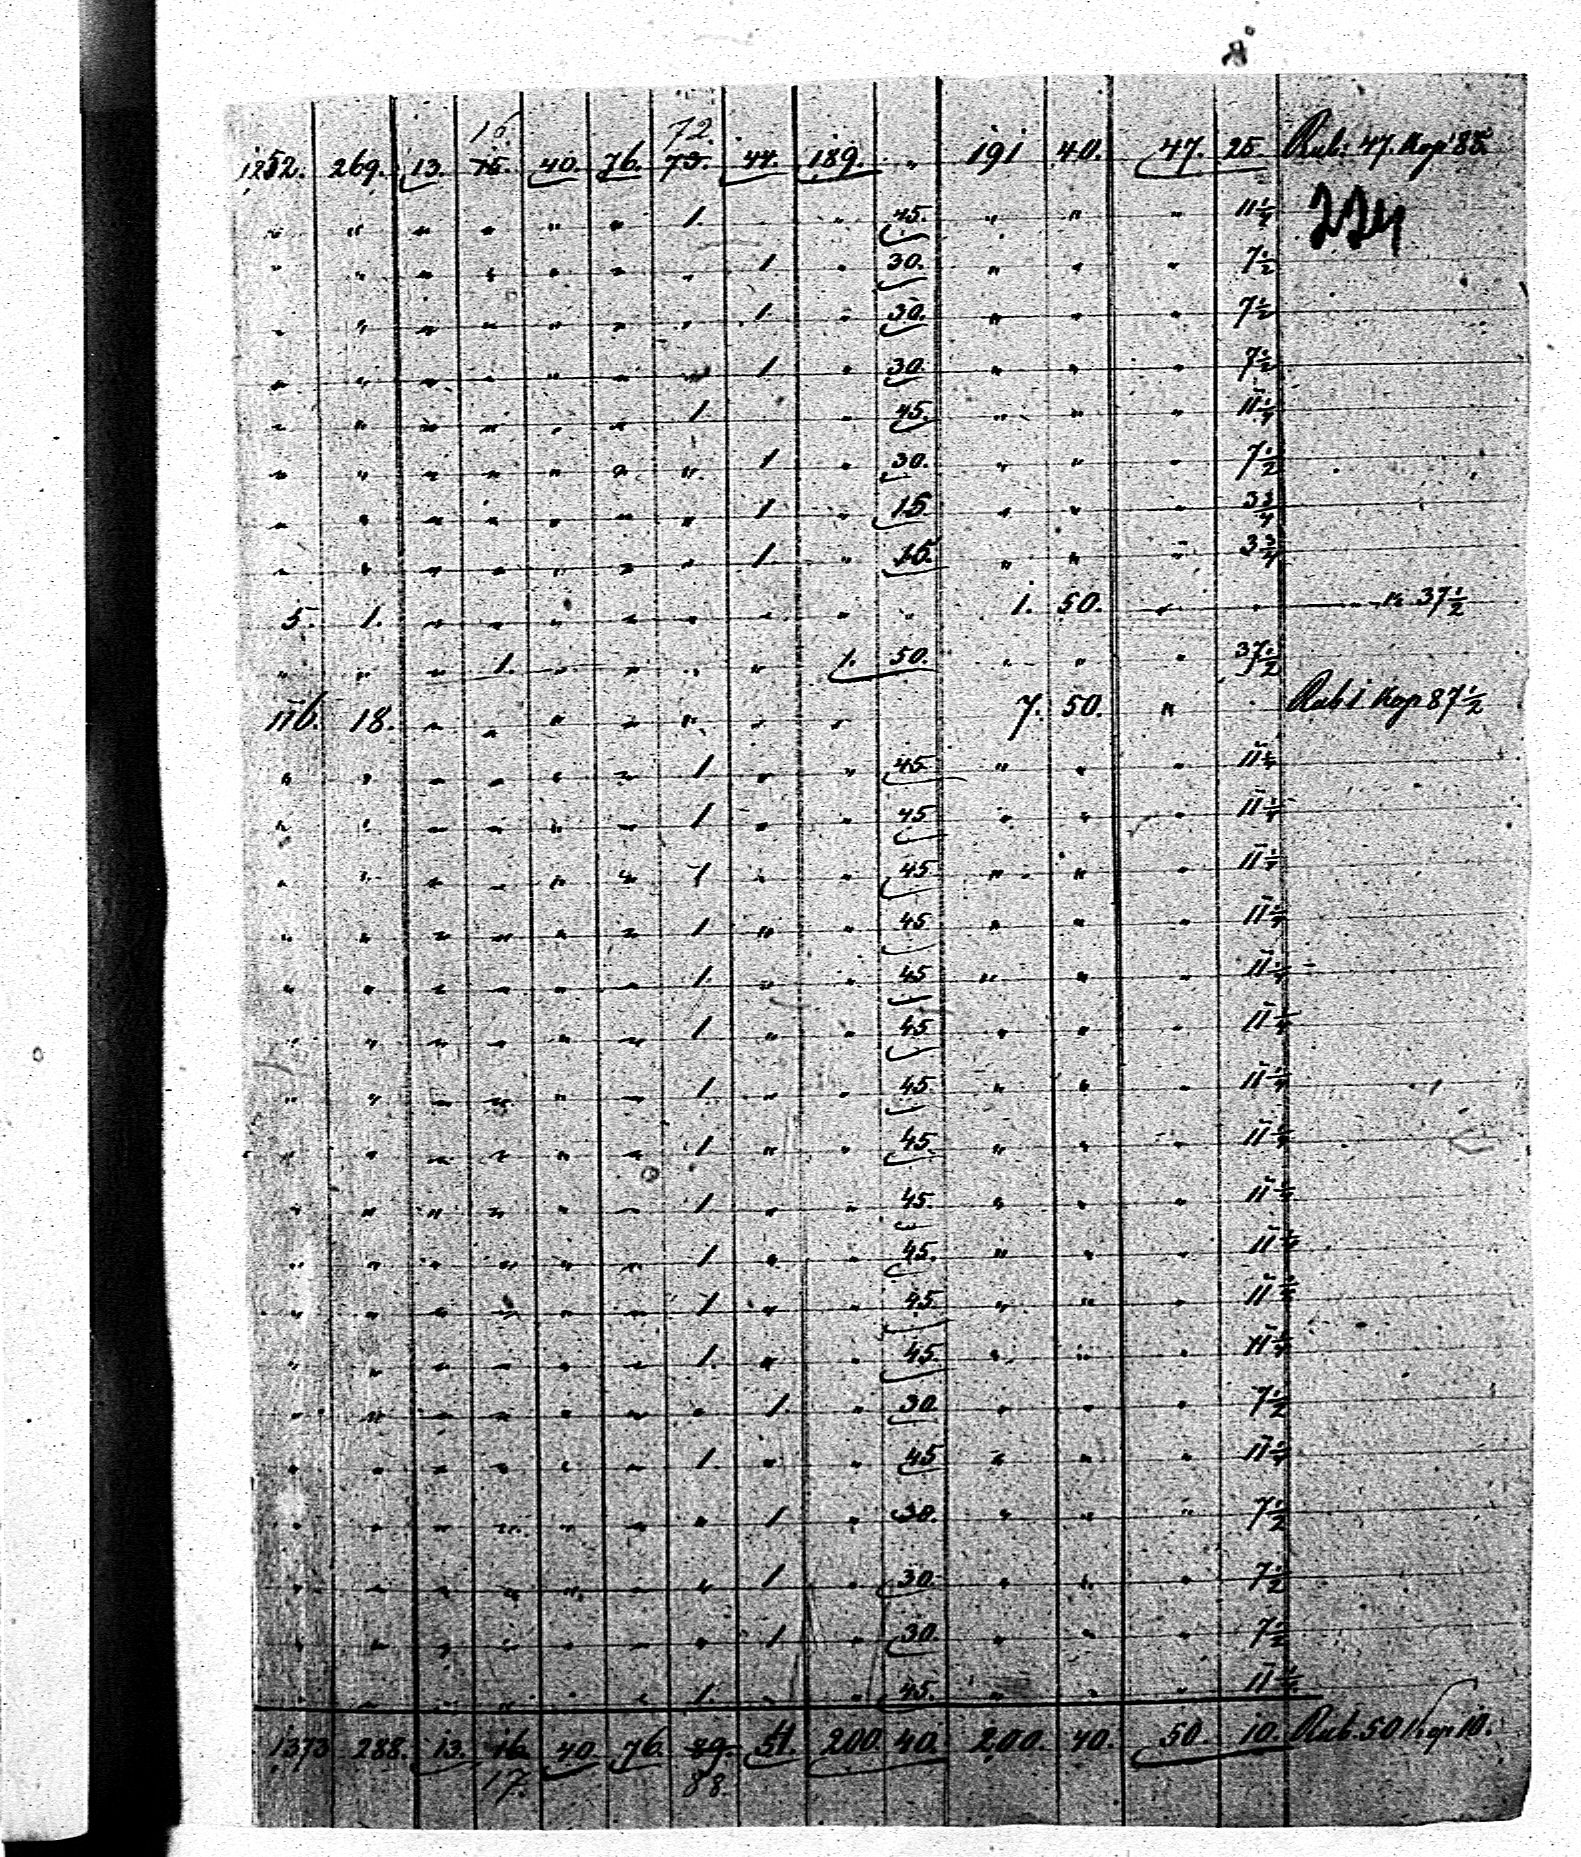 16 72
1252. 269. 13. 15. 40. 76. 73. 44. 189. " 191 40. 47. 25 Rub: 47. Kop 88.
" " " " " " 1. " " 45. " " " 11 1/4 224
" " " " " " " 1 " 30. " " " 7 1/2
" " " " " " " 1. " 30. " " " 7 1/2
" " " " " " " 1 " 30. " " " 7 1/2
" " " " " " 1. " 45. " " " 11 1/4
" " " " " " " 1 " 30. " " " 7 1/2
" " " " " " " 1 " 15 " " " 3 3/4
" " " " " " " 1. " 15. " " " 3 3/4
5. 1. " " " " " " " " 1. 50. " " " 37 1/2
" " " 1. " " " " 1. 50. " " " 37 1/2
116. 18. " " " " " " " 7. 50. " " Rub 1 Kop 87 1/2
" " " " " " 1 " " 45 " " " 11 1/4
" " " " " " 1 " " 45 " " " 11 1/4
" " " " " " 1 " " 45 " " " 11 1/4
" " " " " " 1 " " 45 " " " 11 1/4
" " " " " " 1. " " 45 " " " 11 1/4
" " " " " " 1 " " 45 " " " 11 1/4
" " " " " " 1. " " 45. " " " 11 1/4
" " " " " " 1 " " 45. " " " 11 1/4
" " " " " " 1 " " 45. " " " 11 1/4
" " " " " " 1 " " 45. " " " 11 1/4
" " " " " " 1 " " 45 " " " 11 1/4
" " " " " " 1. " " 45. " " " 11 1/4
" " " " " " " 1. " 30. " " " 7 1/2
" " " " " " 1. " " 45 " " " 11 1/4
" " " " " " " 1 " 30. " " " 7 1/2
" " " " " " " 1 " 30. " " " 7 1/2
" " " " " " " 1 " 30. " " " 7 1/2
" " " " " " 1. " " 45. " " " 11 1/4
1373 288. 13. 16. 40. 76. 89. 51. 200 40. 200. 40. 50. 10. Rub. 50 Kop 10.
17. 88.